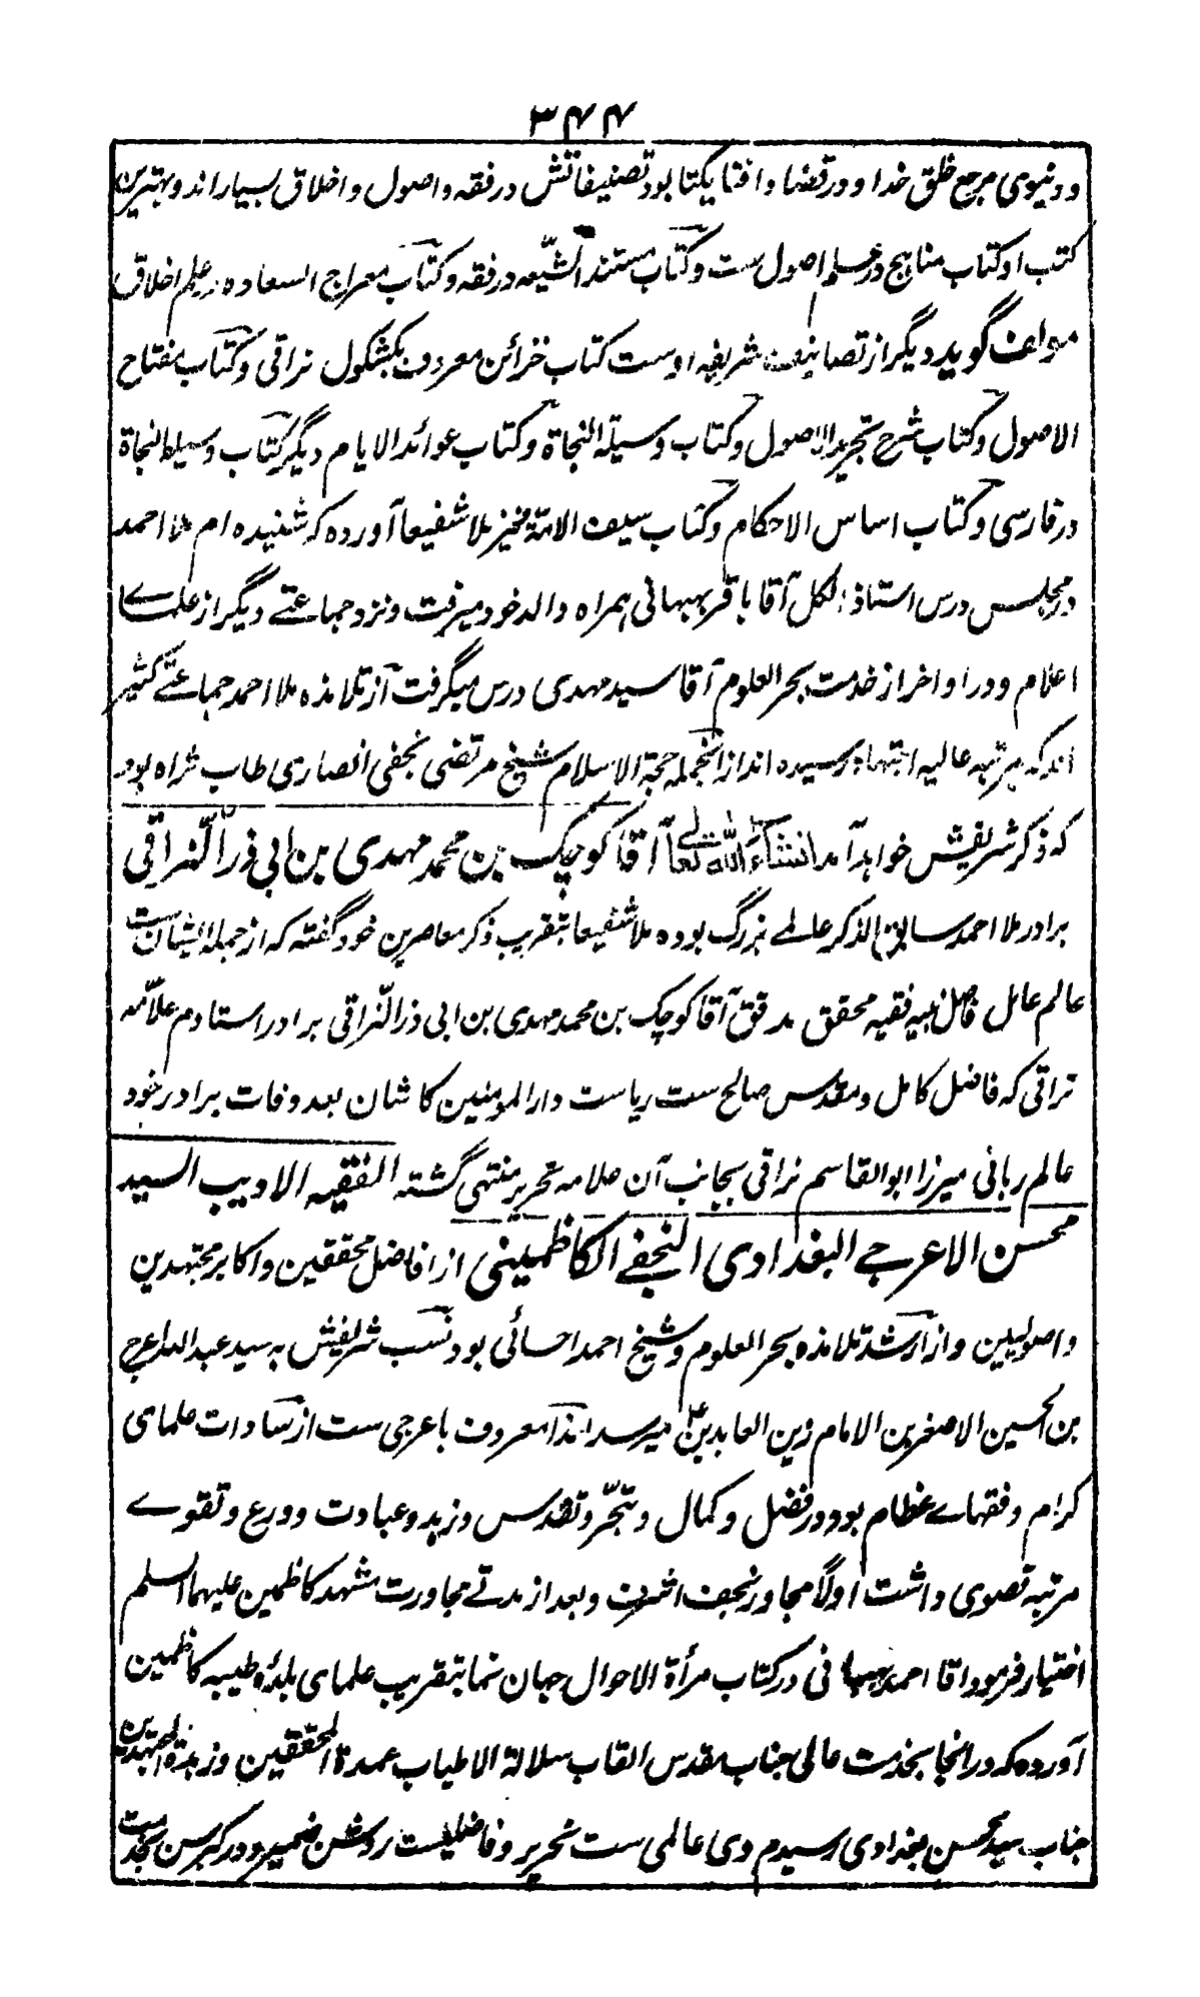 ۳۴۴
و دنیوی مرجع خلق خدا و در قضا و افتا یکتا بود تصنیفاتش در فقه و اصول و اخلاق بسیار اند و بهترین
کتب او کتاب مناهج در علم اصول ست و کتاب مستند الشّیعه در فقه و کتاب معراج السعاده در علم اخلاق
مولف گوید دیگر از تصانیف شریفه اوست کتاب خزائن معروف بکشکول نراقی و کتاب مفتاح
الاصول و کتاب شرح تجرید الاصول و کتاب وسیلة النجاة و کتاب عوائد الایام دیگر کتاب وسیلة النجاة
در فارسی و کتاب اساس الاحکام و کتاب سیف الامة نیز ملا شفیعا آورده که شنیده ام ملا احمد
در مجلس درس استاذ الکل آقا باقر بهبهانی همراه والد خود میرفت و نزد جماعتے دیگر از علماے
اعلام و در اواخر از خدمت بحر العلوم آقا سید مهدی درس میگرفت از تلامذه ملا احمد جماعتے کثیر
اند که بمرتبه عالیه اجتهاد رسیده اند از انجمله حجة الاسلام شیخ مرتضی نجفی انصاری طاب ثراه بود
که ذکر شریفش خواهد آمد انشاء الله تعالے آقا کوچک بن محمد مهدی بن ابی ذر النّراقی
برادر ملا احمد سابق الذکر عالمے بزرگ بوده ملا شفیعا بتقریب ذکر معاصرین خود گفته که از جمله ایشان ست
عالم عامل فاضل نبیه فقیه محقق مدقق آقا کوچک بن محمد مهدی بن ابی ذر النّراقی برادر استادم علّامه
نراقی که فاضل کامل و مقدس صالح ست ریاست دار المومنین کاشان بعد وفات برادر خود
عالم ربانی میرزا ابوالقاسم نراقی بجانب آن علامه نحریر منتهی گشته الفقیه الادیب السید
محسن الاعرجے البغدادی النجفے الکاظمینی از افاضل محققین و اکابر مجتهدین
و اصولیین و از ارشد تلامذه بحر العلوم و شیخ احمد احسائی بود نسب شریفش به سید عبد الله اعرج
بن الحسین الاصغر بن الامام زین العابدین ع میرسد لهذا معروف باعرجی ست از سادات علمای
کرام و فقهاے عظام بود و در فضل و کمال و تبحّر و تقدس و زهد و عبادت و ورع و تقوے
مرتبه قصوی داشت اولاً مجاور نجف اشرف و بعد از مدتے مجاورت مشهد کاظمین علیهما السلم
اختیار فرمود اقا احمد بهبهانی در کتاب مرأة الاحوال جهان نما بتقریب علمای بلدۀ طیبه کاظمین
آورده که در انجا بخدمت عالی جناب مقدس القاب سلالة الاطیاب عمدة المحققین و زبدة المجتهدین
جناب سید محسن بغدادی رسیدم وی عالمی ست نحریر و فاضلیست روشن ضمیر و در کبر سن بخدمت